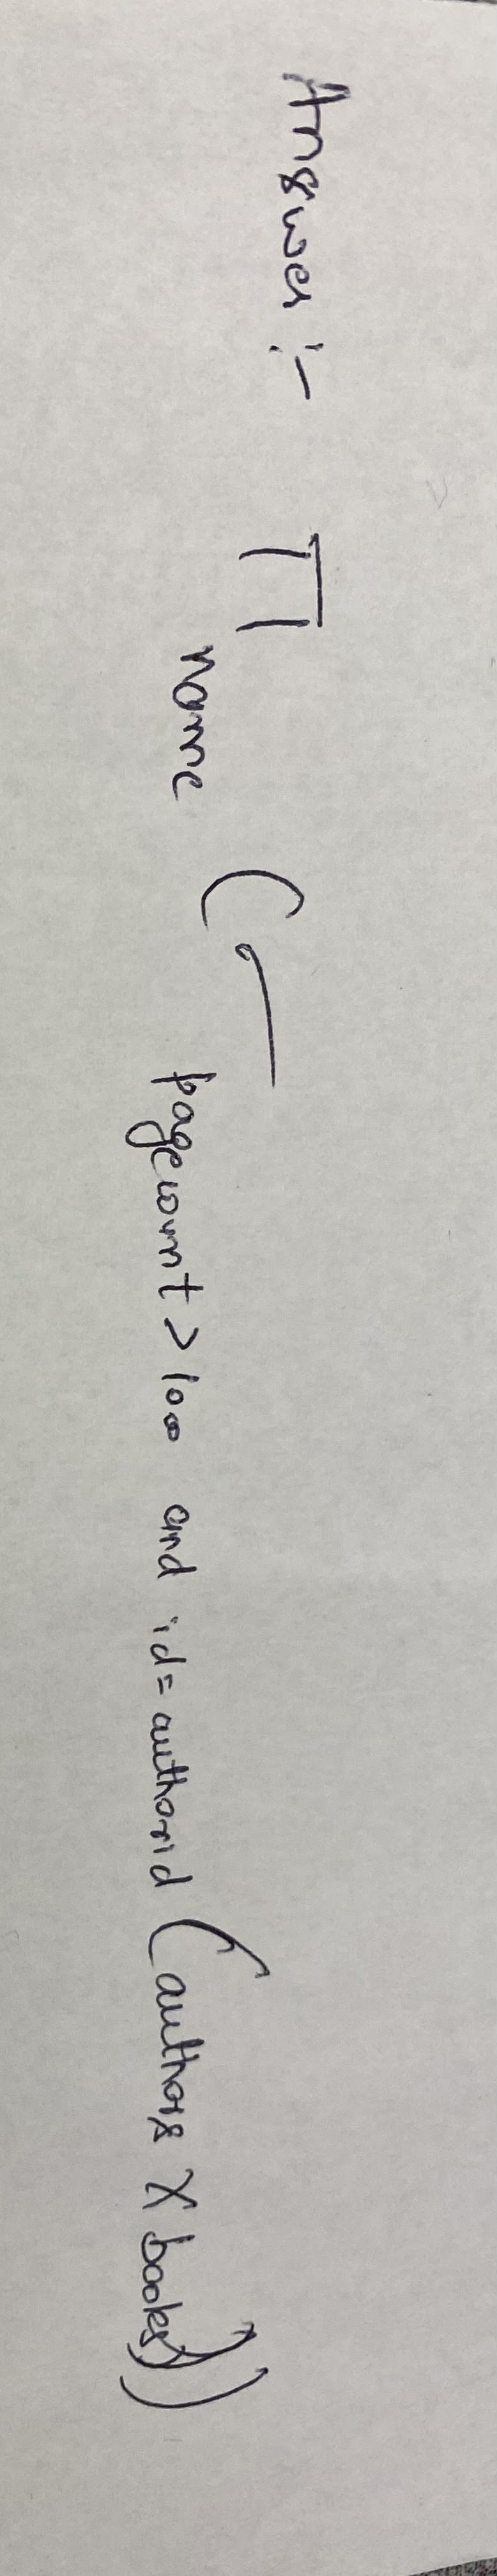 Answer :- Π name (σ pagecount > 1000 and id = authorid (authors X books))